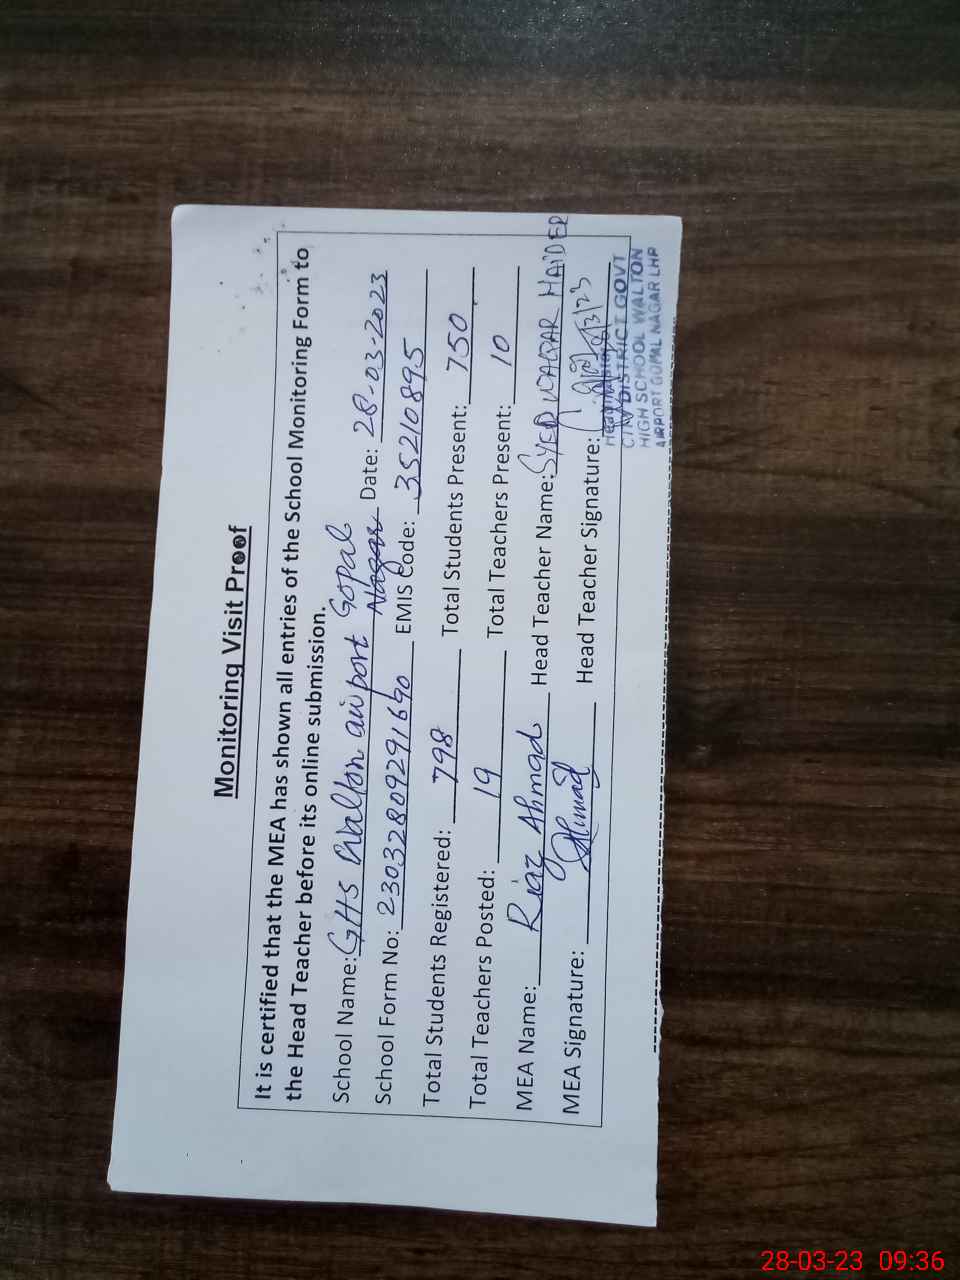 Monitoring Visit Proof
It is certified that the MEA has shown all entries of the School Monitoring Form to
the Head Teacher before its online submission.
School Name: GHS Walton airport Gopal Nagar Date: 28-03-2023
School Form No: 230328092916 90 EMIS Code: 35210895
Total Students Registered: 798 Total Students Present: 750
Total Teachers Posted: 19 Total Teachers Present: 10
MEA Name: Riaz Ahmad Head Teacher Name: SYED WAQAR HAIDER
MEA Signature: Ahmad Head Teacher Signature:
CITY DISTRICT GOVT
HIGH SCHOOL WALTON
AIRPORT GOPAL NAGAR LHR
28-03-23 09:36